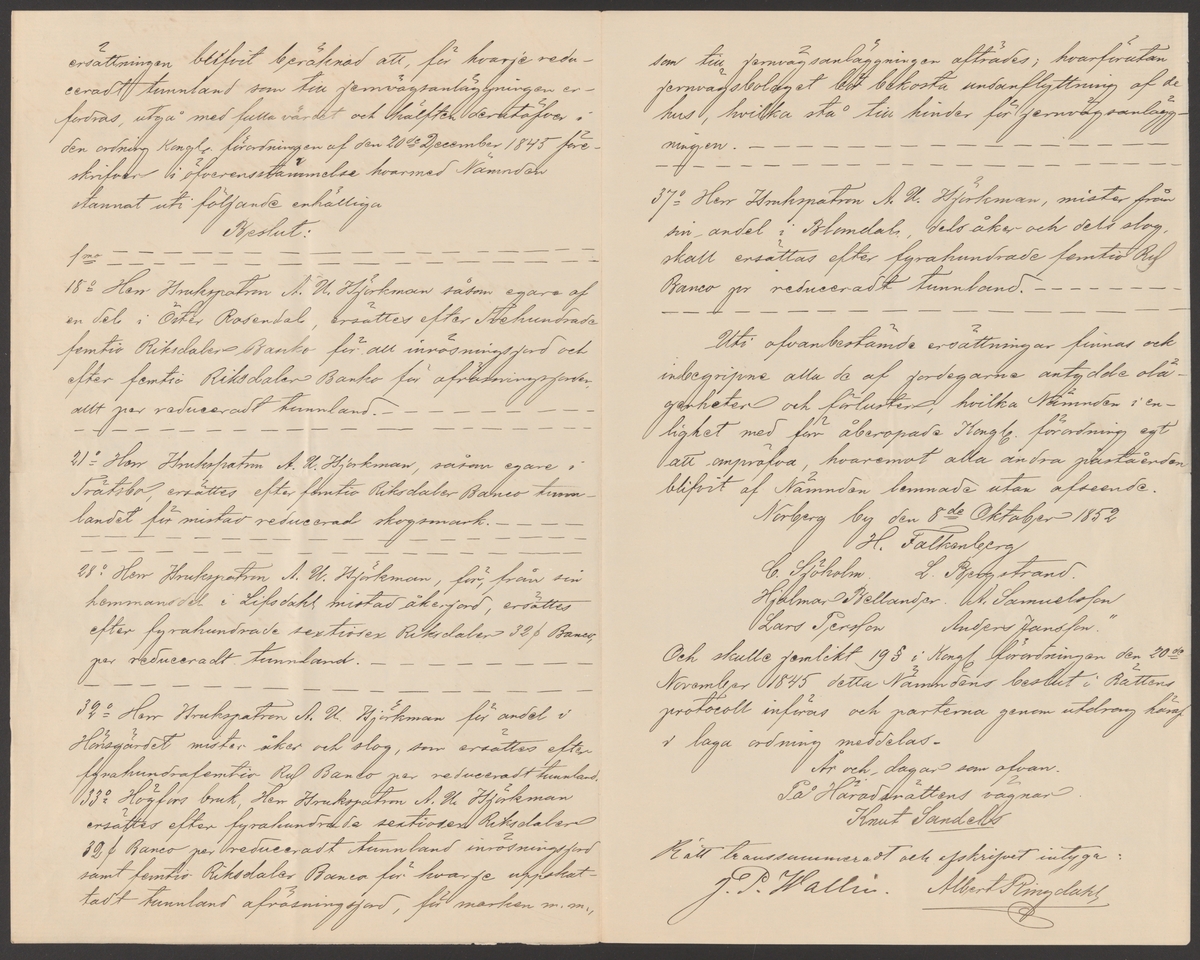 ersättningen blifvit beräknad att, för hvarje redu-
ceradt tunnland som till jernvägsanläggningen er-
fordras, utgå med fulla värdet och hälften derutöfver i
den ordning Kongl. förordningen af den 20de December 1845 före-
skrifver i öfverensstämmelse hvarmed Nämnden
stannat uti följande enhälliga
Beslut:
1mo
18o Herr Brukspatron A. U. Björkman såsom egare af
en del i Öster Rosendal, ersättes efter Trehundrade
femtio Riksdaler Banko för all inrösningsjord och
efter femtio Riksdaler Banko för afrösningsjorden
allt per reduceradt tunnland.
21o Herr Brukspatron A. U. Björkman, såsom egare i
Trätsbo, ersättes efter femtio Riksdaler Banco tunn-
landet för mistad reducerad skogsmark.
28o Herr Brukspatron A. U. Björkman, för, från sin
hemmansdel i Lifsdahl mistad åkerjord, ersättes
efter fyrahundrade sextiosex Riksdaler 32 ß Banco,
per reduceradt tunnland.
32o Herr Brukspatron A. U. Björkman för andel i
Hönsgärdet mister åker och slog, som ersättes efter
fyrahundrafemtio Rd Banco per reduceradt tunnland.
33o Högfors bruk, Herr Brukspatron A. U. Björkman
ersättes efter fyrahundrade sextiosex Riksdaler
32 ß Banco per reduceradt tunnland inrösningsjord
samt femtio Riksdaler Banco för hvarje uppskat-
tadt tunnland afrösningsjord, för marken m.m.,
som till jernvägsanläggningen afträdes; hvarförutan
jernvägsbolaget bör bekosta undanflyttning af de
hus, hvilka stå till hinder för jernvägsanlägg-
ningen.
37o Herr Brukspatron A. U. Björkman, mister från
sin andel i Blomdal, dels åker och dels slog,
skall ersättas efter fyrahundrade femtio Rd
Banco pr reduceradt tunnland.
Uti ofvanbestämde ersättningar finnas och
inbegripne alla de af jordegarne antydde olä-
genheter och förluster, hvilka Nämnden i en-
lighet med för åberopade Kongl. förordning egt
att anpröfva, hvaremot alla andra påståenden
blifvit af Nämnden lemnade utan afseende.
Norberg by den 8de Oktober 1852
H. Falkenberg
C. Sjöholm. L. Bergstrand.
Hjalmar Bellander. A. Samuelson
Lars Persson Anders Jansson."
Och skulle jemlikt 19 § i Kongl. förordningen den 20de
November 1845 detta Nämndens beslut i Rättens
protocoll införas och parterna genom utdrag häraf
i laga ordning meddelas.
År och dagar som ofvan.
På Häradsrättens vägnar
Knut Sandels
Rätt transsummeradt och afskrifvet intyga:
J. P. Wallin. Albert Ringdahl